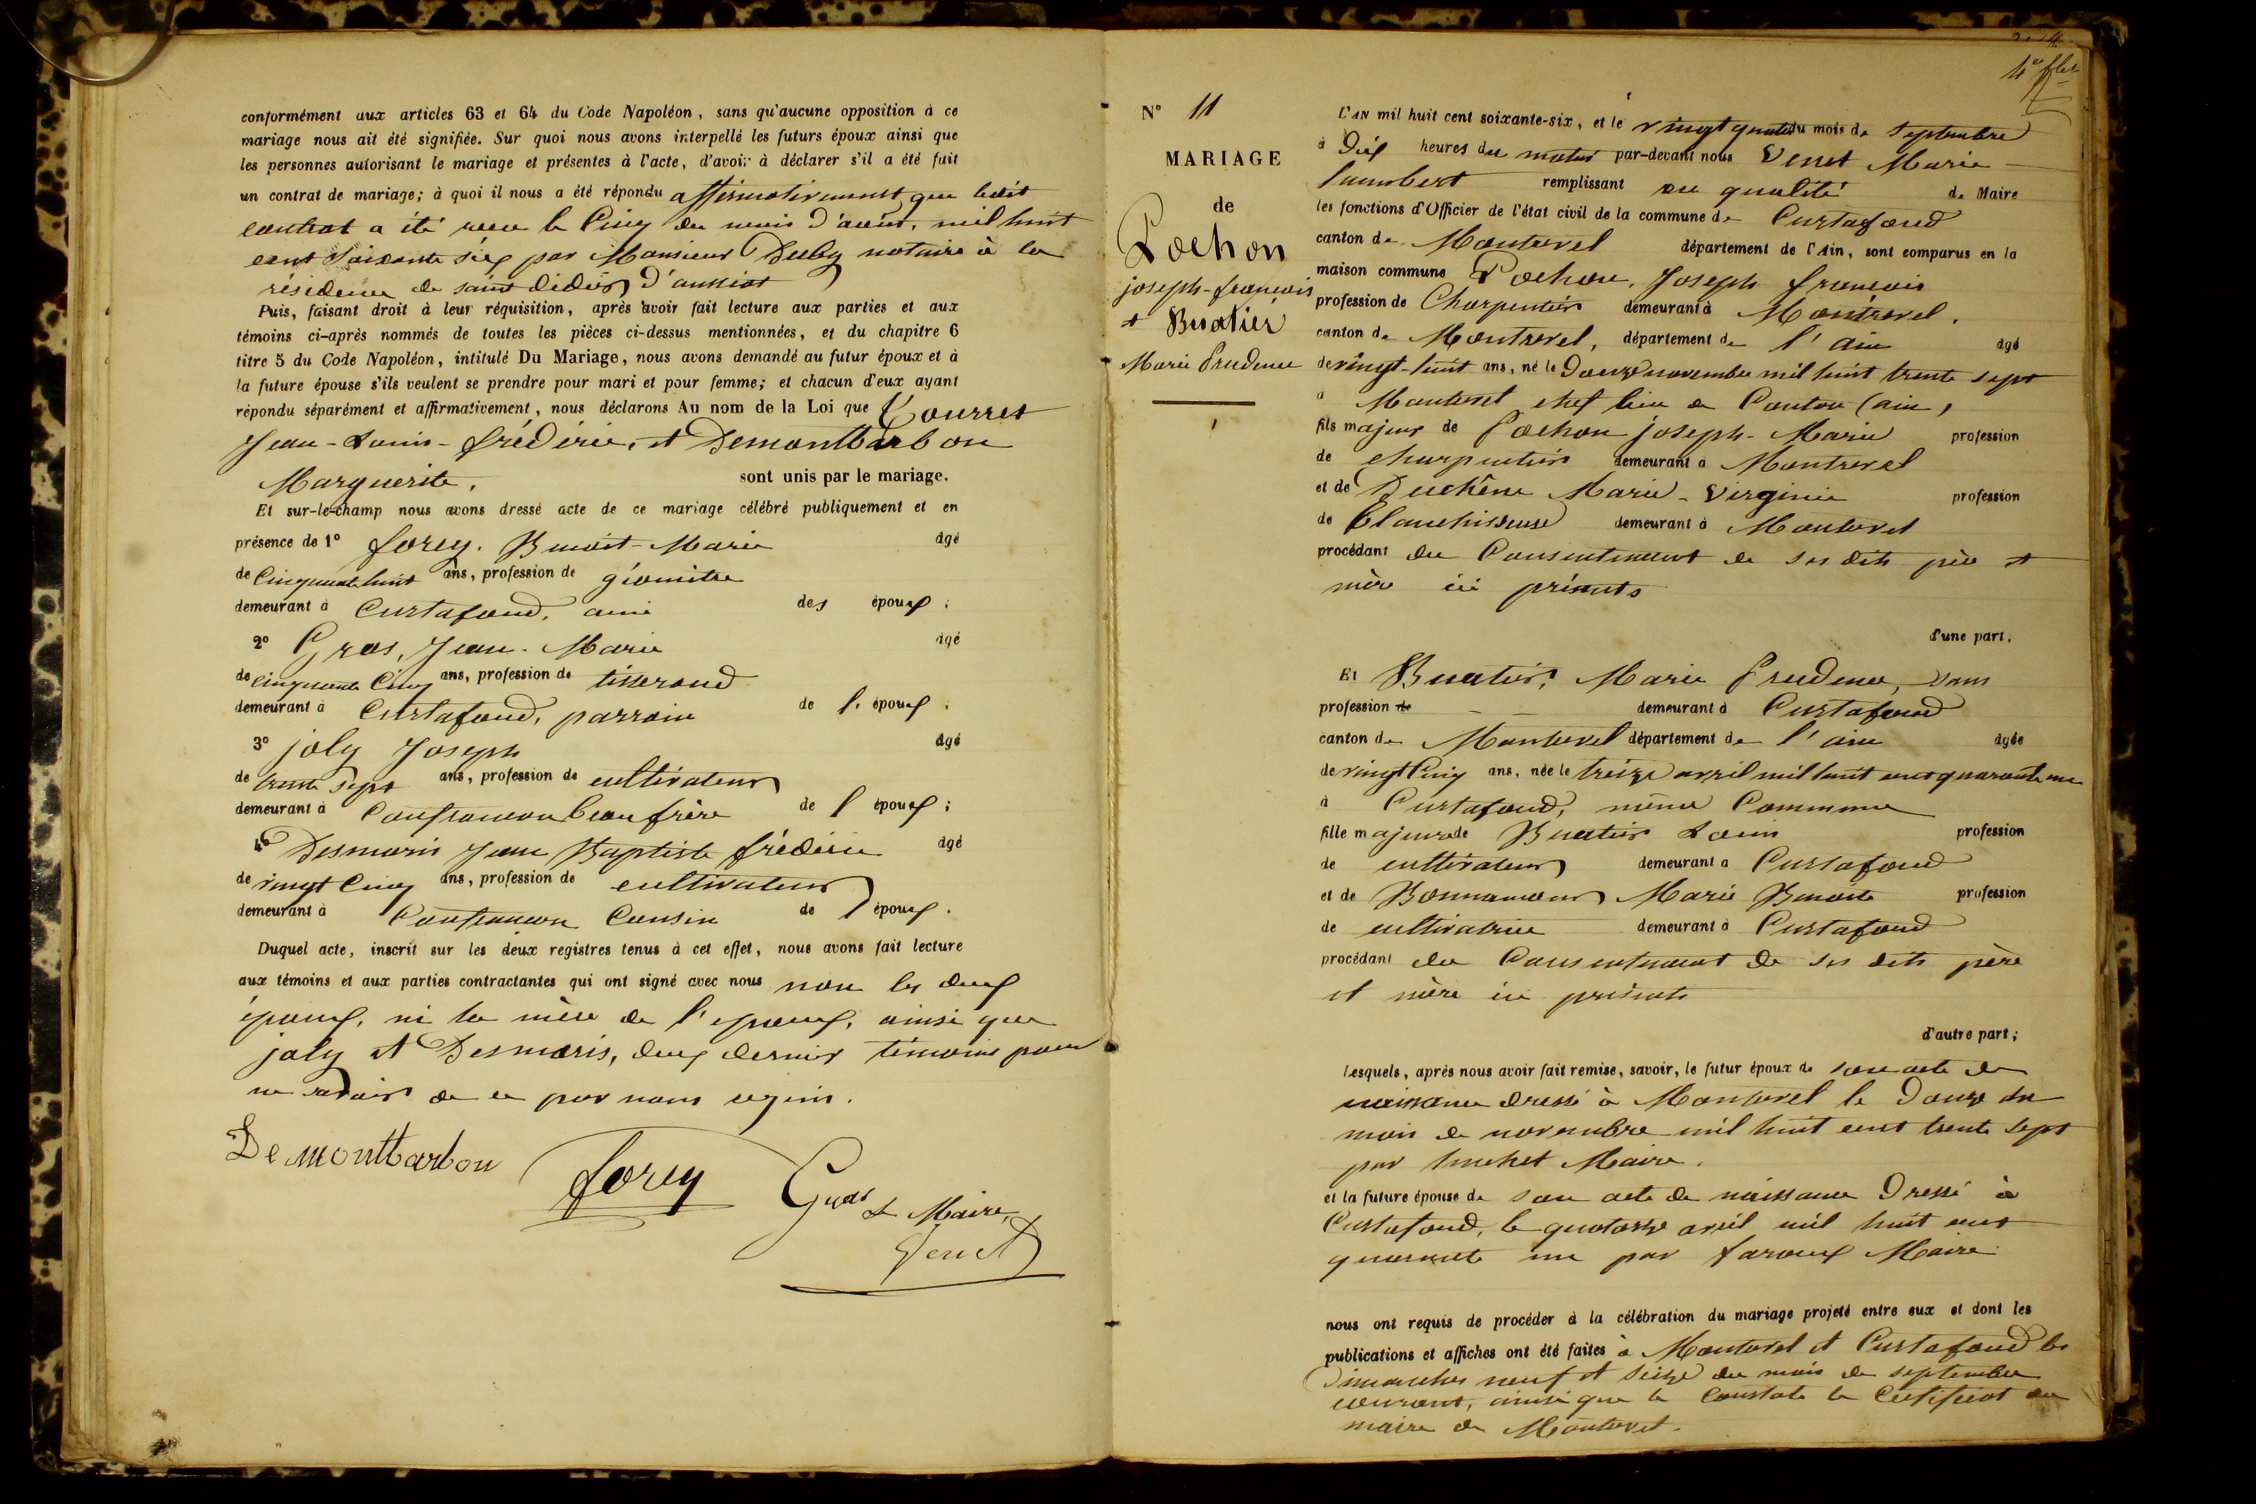 conformément aux articles 63 et 64 du Code Napoléon, sans qu'aucune opposition à ce
mariage nous ait été signifiée. Sur quoi nous avons interpellé les futurs époux ainsi que
les personnes autorisant le mariage et présentes à l'acte, d'avoir à déclarer s'il a été fait
un contrat de mariage; à quoi il nous a été répondu affirmativement que ledit
contrat a été reçu le Cinq du mois d'août, mil huit
cent Soixante Six par Monsieur Duby notaire à la
résidence de saint didier d'aussiat
Puis, faisant droit à leur réquisition, après avoir fait lecture aux parties et aux
témoins ci-après nommés de toutes les pièces ci-dessus mentionnées, et du chapitre 6
titre 5 du Code Napoléon, intitulé Du Mariage, nous avons demandé au futur époux et à
la future épouse s'ils veulent se prendre pour mari et pour femme; et chacun d'eux ayant
répondu séparément et affirmativement, nous déclarons Au nom de la Loi que
Jean-Louis-frédéric, et Demontbarbon
Marguerite, sont unis par le mariage.
Et sur-le-champ nous avons dressé acte de ce mariage célébré publiquement et en
présence de 1° forey. Benoit-Marie âgé
de Cinquante huit ans, profession de géomètre
demeurant à Curtafond, ami des époux;
2° Gras, Jean-Marie âgé
de cinquante Cinq ans, profession de tisserand
demeurant à Curtafond, parrain de l' époux;
3° joly Joseph âgé
de trente sept ans, profession de cultivateur
demeurant à Confrançon beau frère de l' époux;
4° Desmaris Jean Baptiste frédéric âgé
de vingt Cinq ans, profession de cultivateur
demeurant à Confrançon Cousin de l' époux.
Duquel acte, inscrit sur les deux registres tenus à cet effet, nous avons fait lecture
aux témoins et aux parties contractantes qui ont signé avec nous non les deux
époux, ni la mère de l'époux, ainsi que
joly et Desmaris, deux dernier témoins pour
ne savoir de ce par nous requis.
Demontbarbon
forey
Gras
Le Maire,
Venet
4e flet
N° 11
MARIAGE
de
Pochon
joseph-françois
et Buatier
Marie Prudence
L'AN mil huit cent soixante-six, et le vingt quatre du mois de septembre
à Dix heures du matin par-devant nous Venet Marie
lambert remplissant en qualité de Maire
les fonctions d'Officier de l'état civil de la commune de Curtafond
canton de Montrevel département de l'Ain, sont comparus en la
maison commune Pochon, Joseph françois
profession de Charpentier demeurant à Montrevel.
canton de Montrevel, département de l'ain âgé
de vingt-huit ans, né le Douze novembre mil huit trente sept
à Montrevel chef lieu de Canton (ain)
fils majeur de Pochon joseph-Marie profession
de charpentier demeurant à Montrevel
et de Duchêne Marie-Virginie profession
de Blanchisseuse demeurant à Montrevel
procédant du Consentement de ses dits père et
mère ici présents
d'une part,
Et Buatier, Marie Prudence, sans
profession de demeurant à Curtafond
canton de Montrevel département de l'ain âgée
de vingt Cinq ans, née le treize avril mil huit cent quarante un
à Curtafond, même Commune
fille majeure de Buatier Louis profession
de cultivateur demeurant à Curtafond
et de Bonnamour Marie Benoite profession
de cultivatrice demeurant à Curtafond
procédant du Consentement de ses dits père
et mère ici présents
d'autre part;
Lesquels, après nous avoir fait remise, savoir, le futur époux de son acte de
naissance dressé à Montrevel le Douze du
mois de novembre mil huit cent trente sept
par Maire.
et la future épouse de son acte de naissance Dressé à
Curtafond, le quatorze avril mil huit cent
quarante un par faroux Maire
nous ont requis de procéder à la célébration du mariage projeté entre eux et dont les
publications et affiches ont été faites à Montrevel et Curtafond les
Dimanches neuf et seize du mois de septembre
courant, ainsi que le Constate le Certificat du
maire de Montrevel.